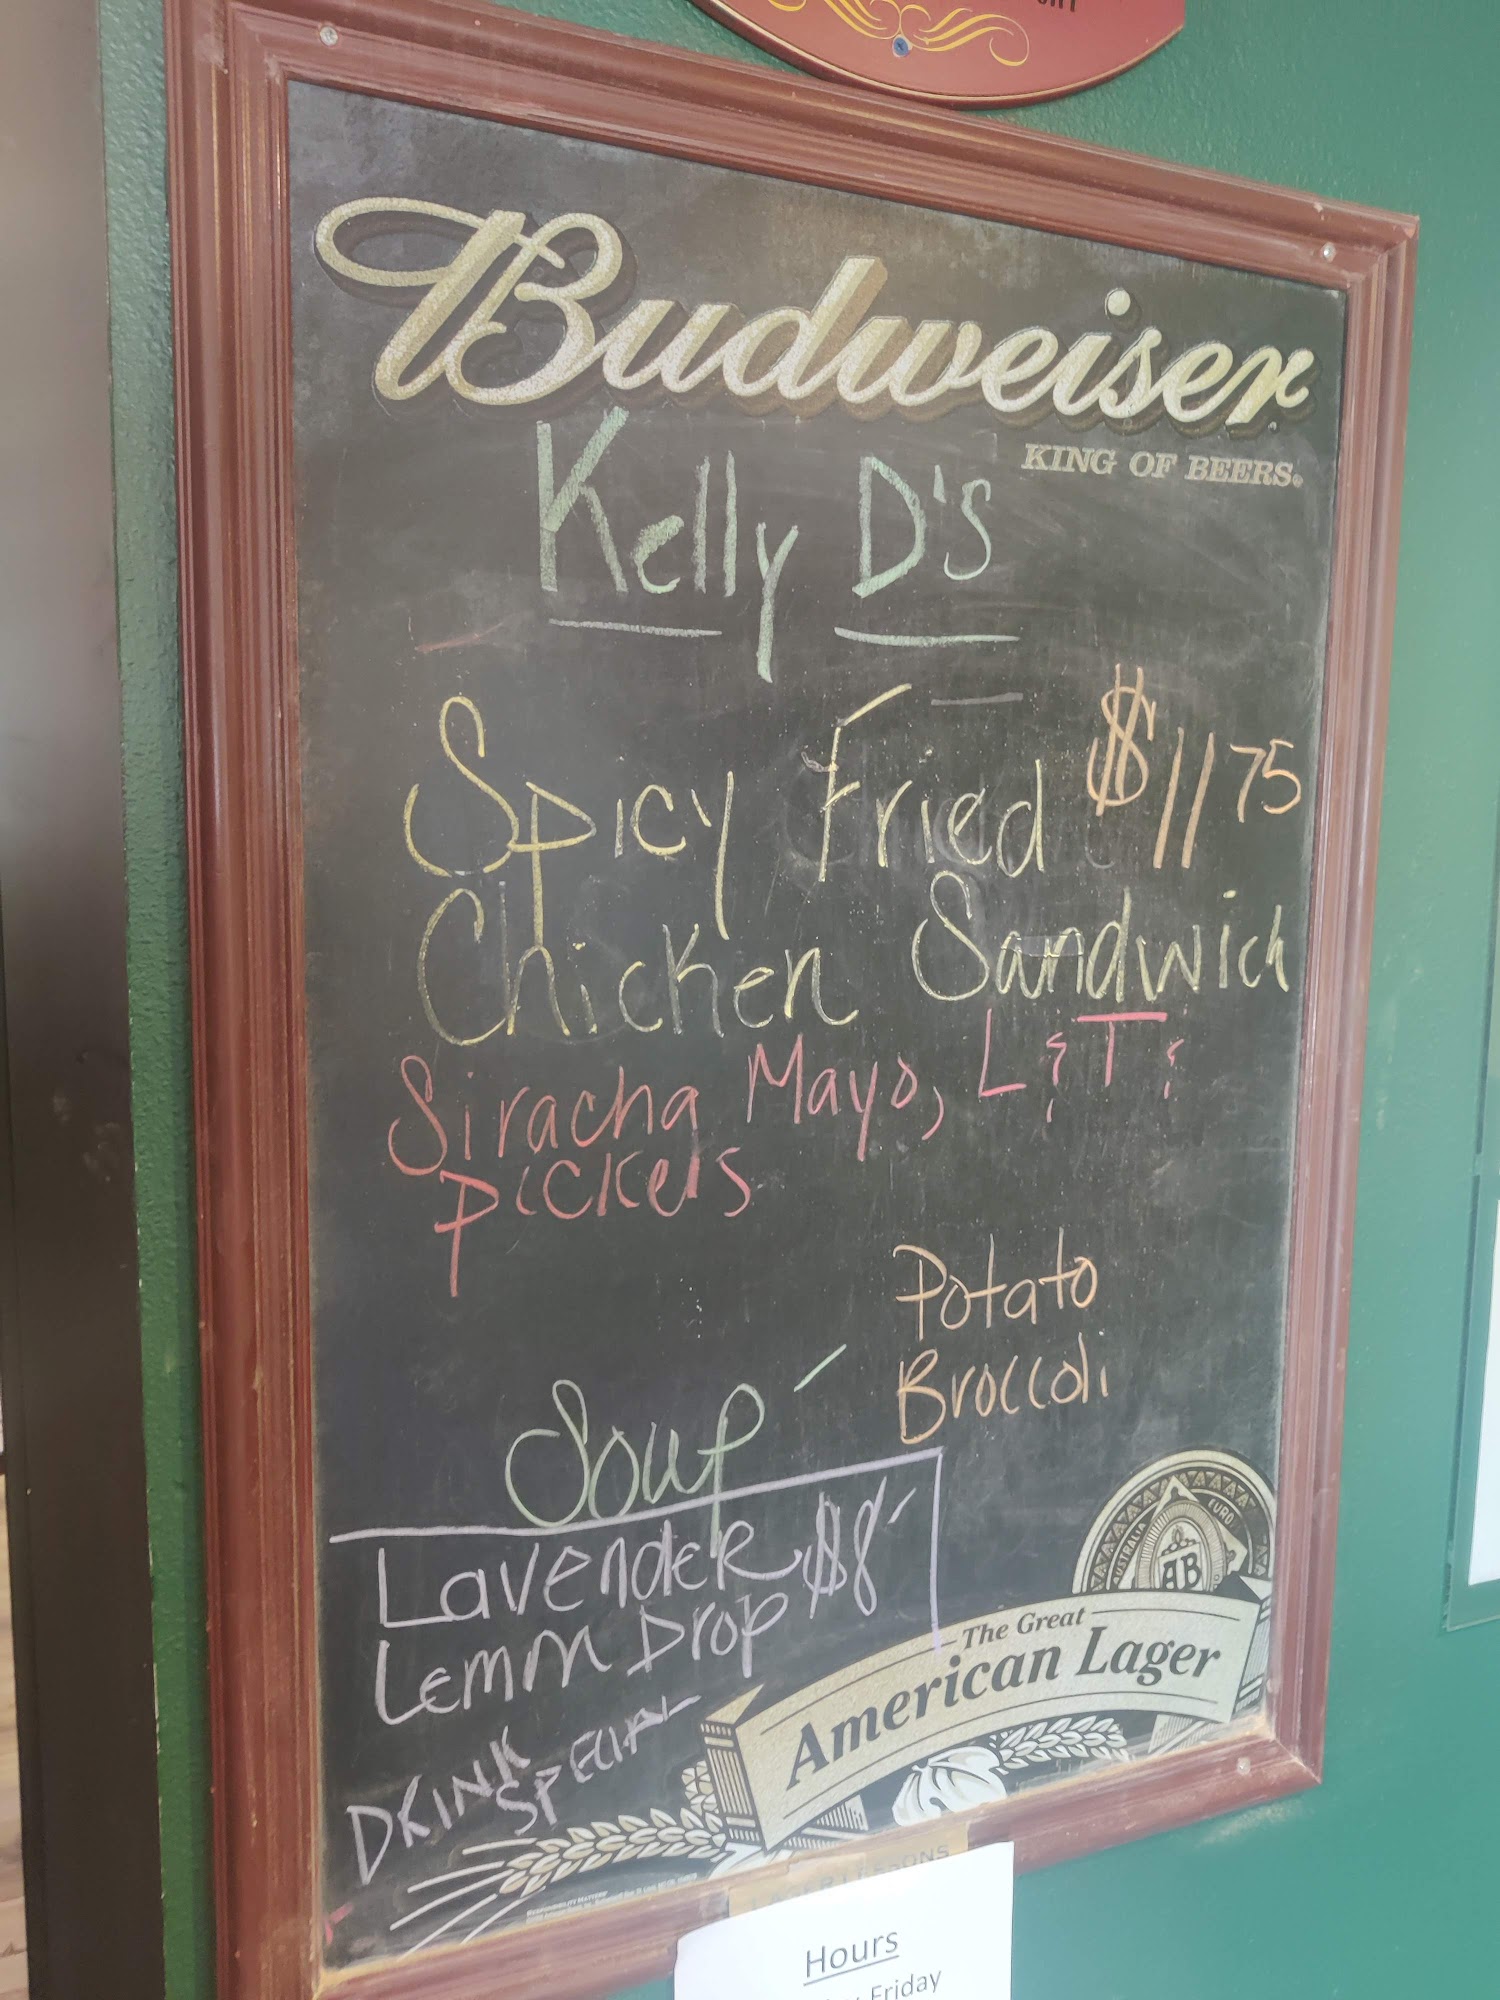 Budweiser
KING OF BEERS.
Kelly D's
Spicy Fried $11 75
Chicken Sandwich
Siracha Mayo, L & T &
Pickels
Potato
Broccoli
Soup
Lavender $8
Lemon Drop
DRINK
SPECIAL
EURO
AUSTRALIA
AB
The Great
American Lager
Hours
Friday